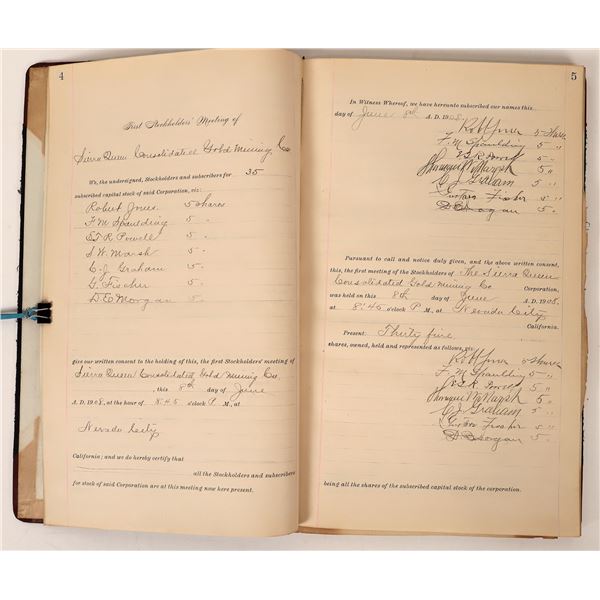 4
First Stockholders' Meeting of
Sierra Queen Consolidated Gold Mining Co
We, the undersigned, Stockholders and subscribers for 35
subscribed capital stock of said Corporation, viz:
Robert Jones 5 shares
F M Spaulding 5 "
E T R Powell 5 "
S W Marsh 5 "
C. J. Graham 5 "
G. Fischer 5 "
D E Morgan 5 "
give our written consent to the holding of this, the first Stockholders' meeting of
Sierra Queen Consolidated Gold Mining Co.
, this 8th day of June
A. D. 1908, at the hour of 8:45 o'clock P. M., at
Nevada City
California; and we do hereby certify that
all the Stockholders and subscribers
for stock of said Corporation are at this meeting now here present.
5
In Witness Whereof, we have hereunto subscribed our names this
day of June 8th A. D. 1908.
Robt Jones 5 shares
F. M. Spaulding 5 "
E T R Powell 5 "
W Marsh 5 "
C. J. Graham 5 "
Fischer 5 "
D E Morgan 5 "
Pursuant to call and notice duly given, and the above written consent,
this, the first meeting of the Stockholders of The Sierra Queen
Consolidated Gold Mining Co Corporation,
was held on this 8th day of June A. D. 1908.
at 8:45 o'clock P. M., at Nevada City
California.
Present: Thirty five
shares, owned, held and represented as follows, viz:
Robt Jones 5 shares
F. M. Spaulding 5 "
E T R Powell 5 "
W Marsh 5 "
C. J. Graham 5 "
Fischer 5 "
D E Morgan 5 "
being all the shares of the subscribed capital stock of the corporation.